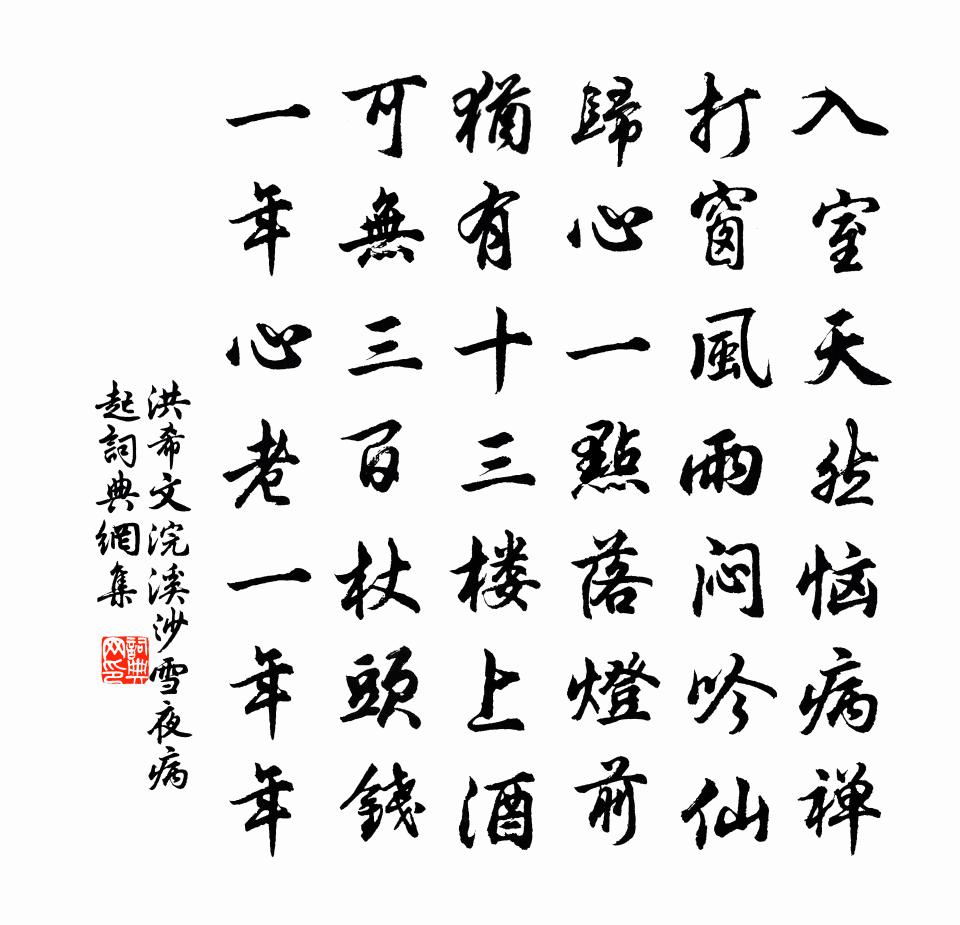 入室天然恼病禅
打窗風雨闷吟仙
歸心一點落燈前
猶有十三楼上酒
可無三百杖頭錢
一年心老一年年
洪希文浣溪沙雪夜病
起詞典網集
詞典
网印